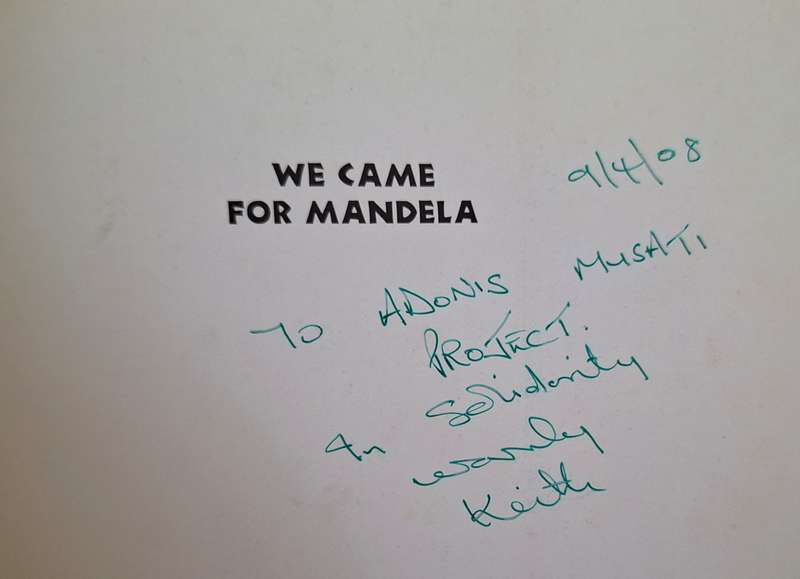 WE CAME
FOR MANDELA
9/4/08
TO ADONIS MUSATI
PROJECT.
In solidarity
warmly
Keith